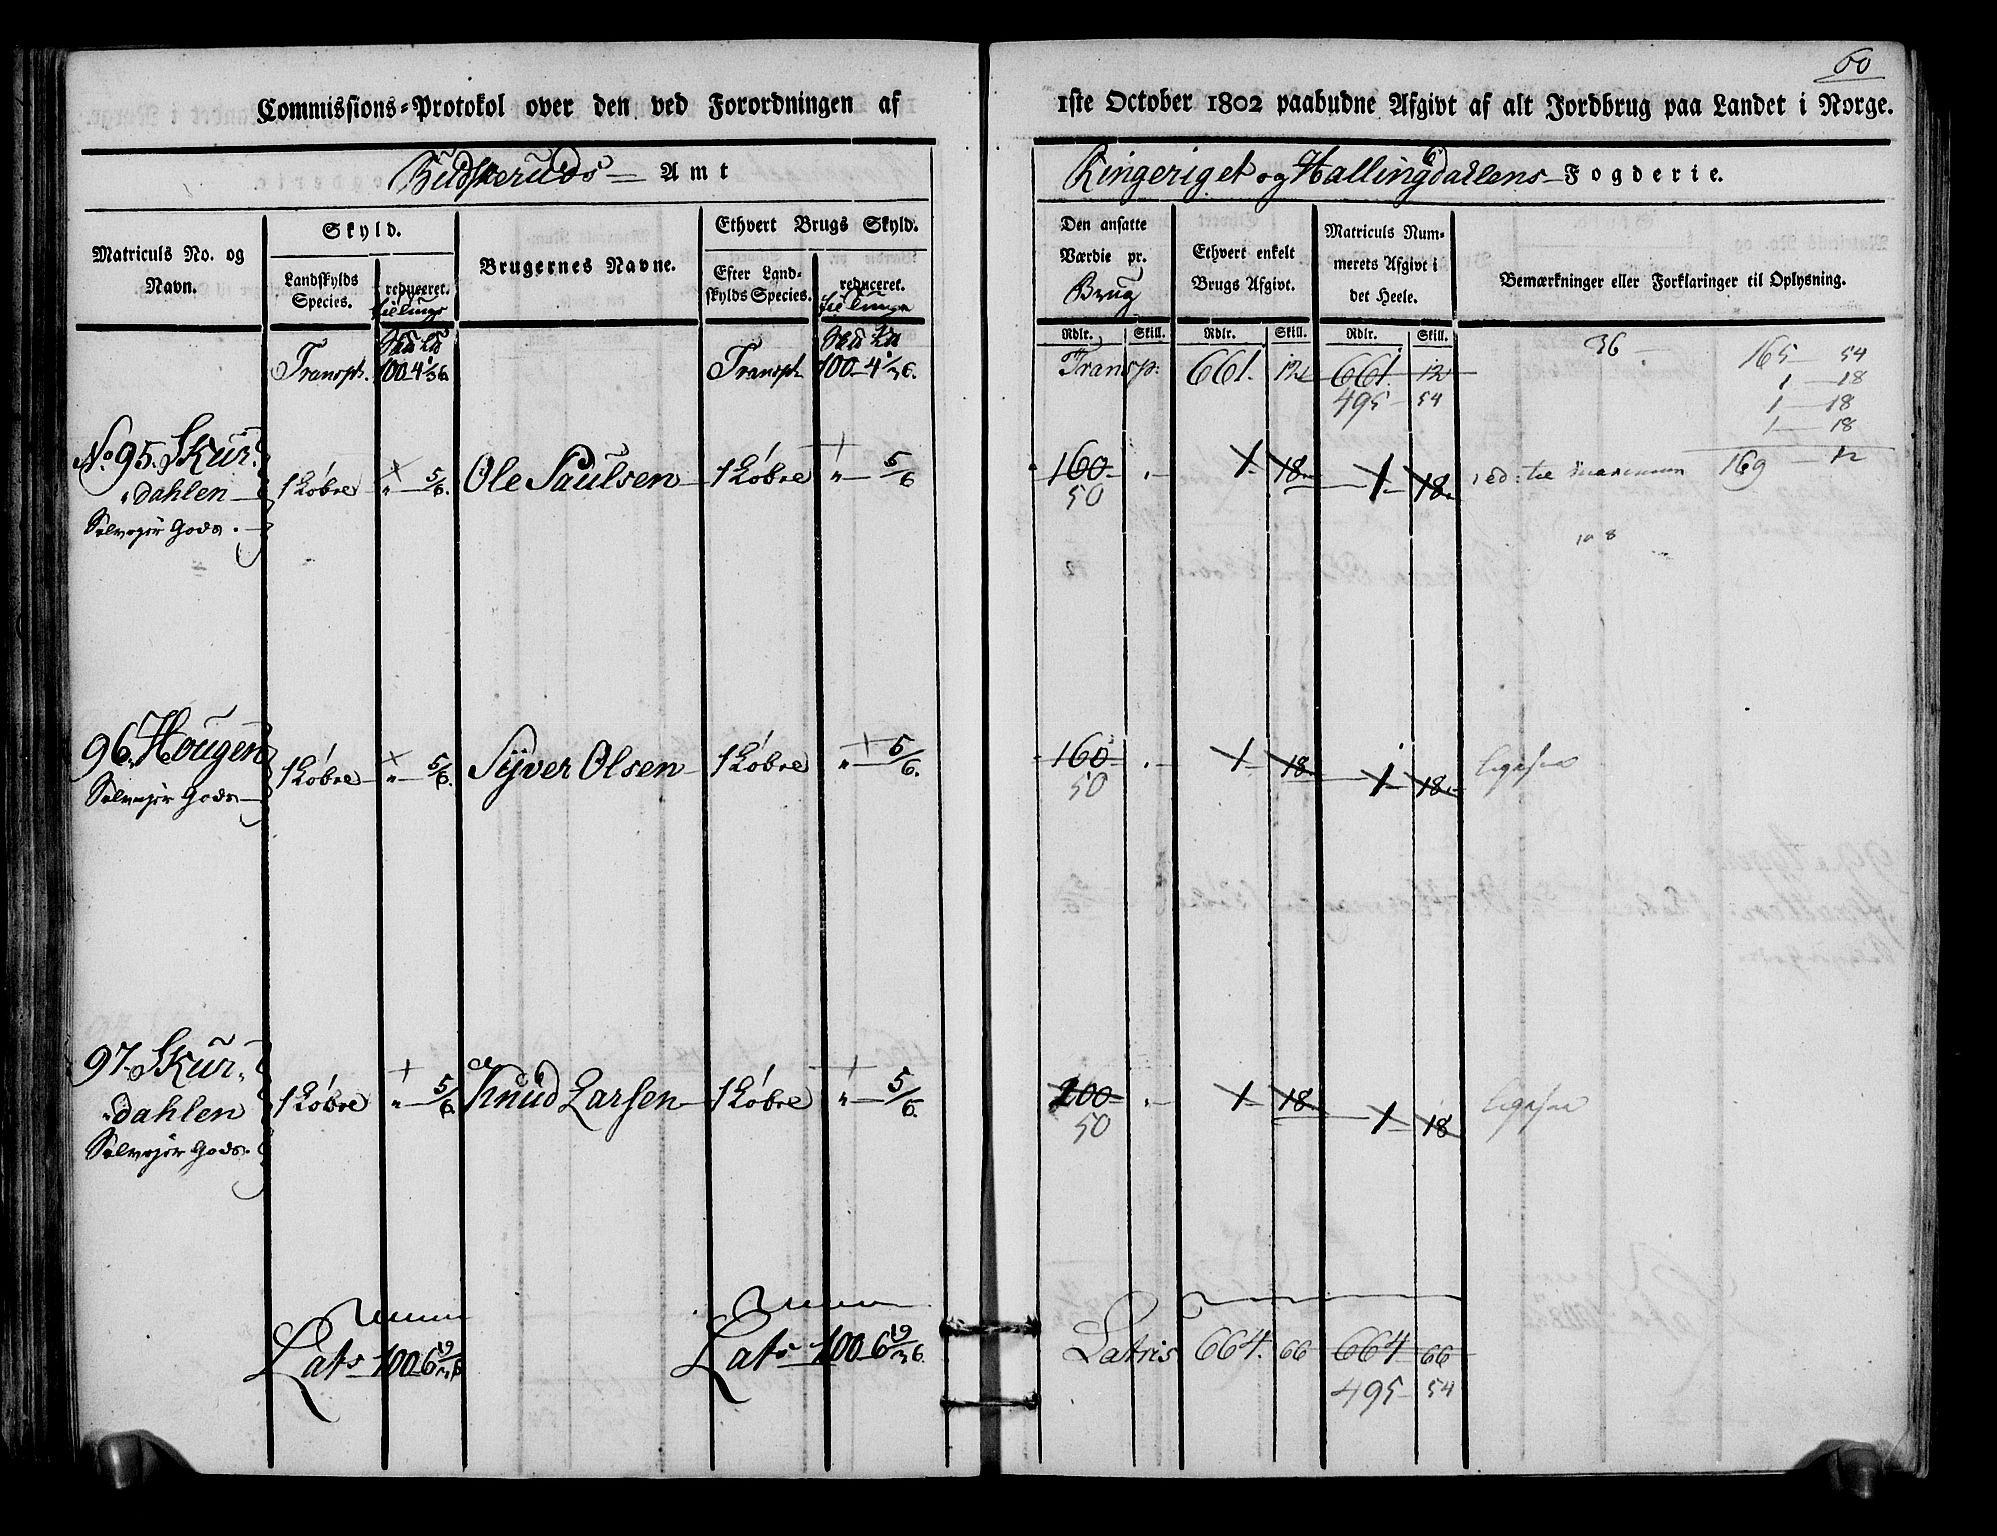 60
Commissions=Protokol over den ved Forordningen af 1ste October 1802 paabudne Afgivt af alt Jordbrug paa Landet i Norge.
Budskeruds Amt
Ringeriget og Hallingdallens Fogderie.
Matriculs No. og Navn.
Skyld.
Landskylds Species.
reduceret.
Brugernes Navne.
Ethvert Brugs Skyld.
Efter Landskylds Species.
reduceret.
Den ansatte Værdie pr. Brug
Ethvert enkelt Brugs Afgivt.
Matriculs Nummerets Afgivt i det Heele.
Bemærkninger eller Forklaringer til Oplysning.
Rdlr. Skill. Rdlr. Skill. Rdlr. Skill.
Transpt. 100 4 1/36. Transpt. 100 4 1/36. Transp: 661. 12 661. 12
495 54
36
165 54
1 18
1 18
1 18
169 12
No 95. Skur-
dahlen 1 Løbre " 5/6. Ole Paulsen 1 Løbre " 5/6 160 " 1 18. 1 18.
50
Selvejer Gods.
96. Hougen 1 Løbre " 5/6. Syver Olsen 1 Løbre " 5/6. 160 " 1 18. 1 18. ligesaa
50
Selvejer Gods
97. Skur-
dahlen 1 Løbre " 5/6. Knud Larsen 1 Løbre " 5/6. 200 " 1 18. 1 18 ligesaa
50
Selvejer Gods.
Lats 100 6 19/36 Lats 100 6 19/36. Latris 664. 66 664 66
495 54